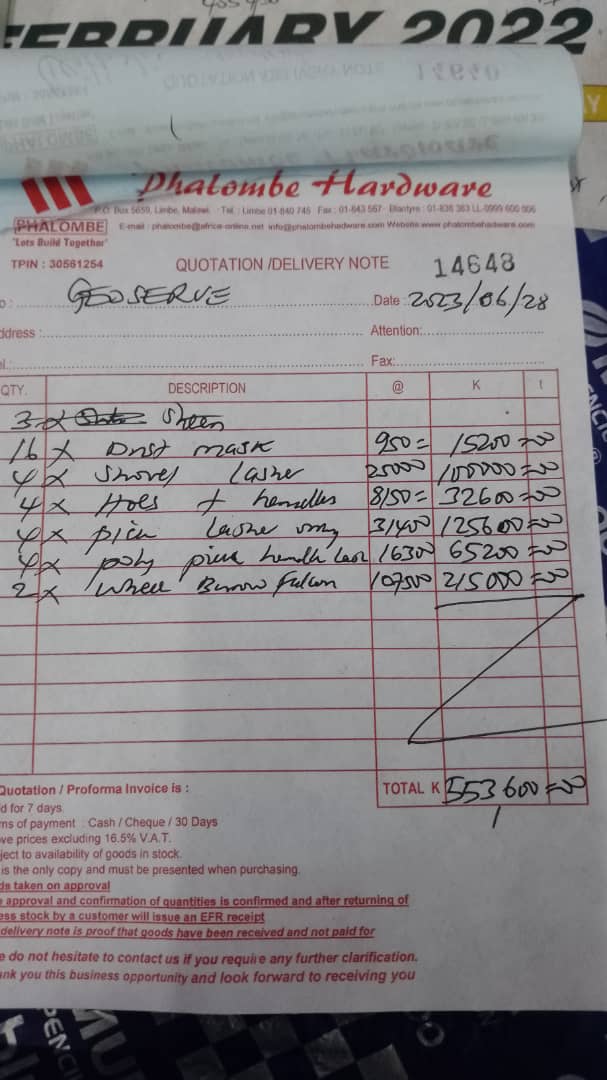 FEBRUARY 2022
Phalombe Hardware
P.O. Box 5659, Limbe, Malawi. Tel.: Limbe 01-840 745 Fax: 01-843 567 Blantyre: 01-836 363 LL-0999 600 906
PHALOMBE
E-mail: phalombe@africa-online.net info@phalombehadware.com Website www.phalombehadware.com
"Lets Build Together"
TPIN : 30561254
QUOTATION /DELIVERY NOTE 14648
o : GEOSERVE Date : 2023/06/28
ddress : Attention:
el.: Fax:
QTY. DESCRIPTION @ K t
3 x Sheen
16 x Dust mask 950= 15200=00
4 x Shovel Lasher 25000 100000=00
4 x Hoes + handles 8150= 32600=00
4 x pick Lasher only 31400 125600=00
4 x poly pick handle Lash 16300 65200=00
2 x Wheel Barrow Falcon 107500 215000=00
TOTAL K 553600=00
Quotation / Proforma Invoice is :
d for 7 days.
ms of payment : Cash / Cheque / 30 Days
ve prices excluding 16.5% V.A.T.
ject to availability of goods in stock.
is the only copy and must be presented when purchasing.
ds taken on approval
e approval and confirmation of quantities is confirmed and after returning of
ess stock by a customer will issue an EFR receipt
delivery note is proof that goods have been received and not paid for
e do not hesitate to contact us if you require any further clarification.
ank you this business opportunity and look forward to receiving you